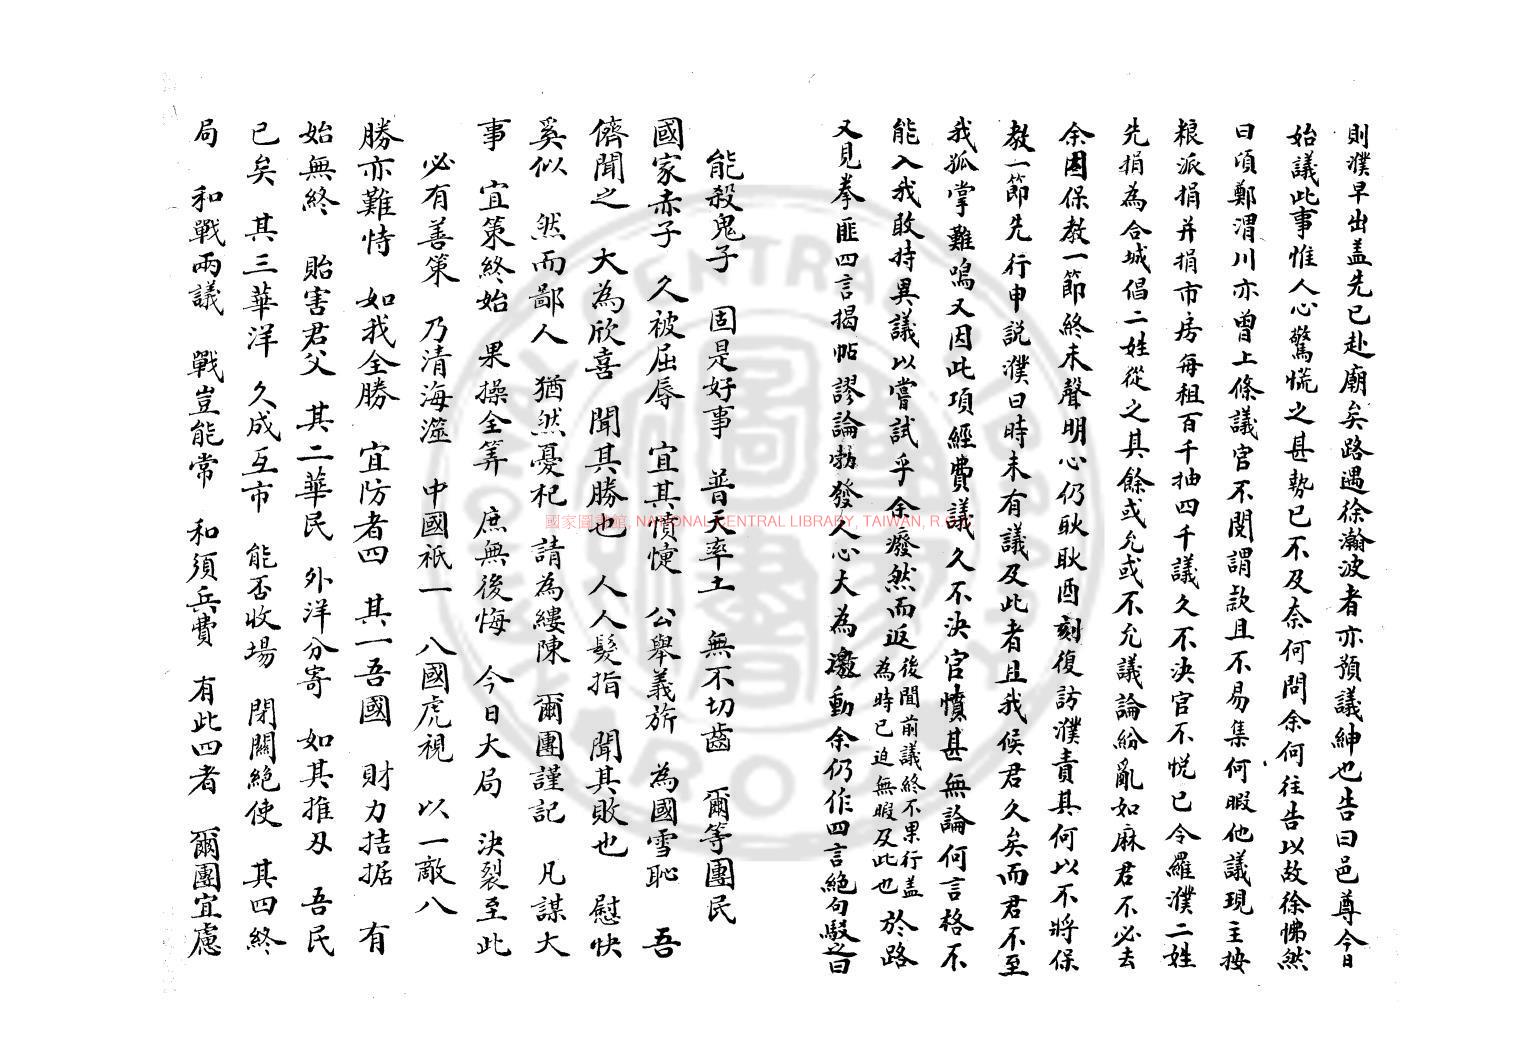 則濮早出盖先已赴廟矣路遇徐瀚波者亦預議紳也告曰邑尊今日
始議此事惟人心驚慌之甚勢已不及奈何問余何往告以故徐怫然
曰頃鄭渭川亦曾上條議官不閱謂款且不易集何暇他議現主按
粮派捐并捐市房每租百千抽四千議久不決官不悅已令羅濮二姓
先捐為合城倡二姓從之其餘或允或不允議論紛亂如麻君不必去
余因保教一節終未聲明心仍耿耿酉刻復訪濮責其何以不將保
教一節先行申説濮曰時未有議及此者且我候君久矣而君不至
我孤掌難鳴又因此項經費議久不決官憤甚無論何言格不
能入我敢持異議以嘗試乎余癈然而返後聞前議終不果行盖為時已迫無暇及此也於路
又見拳匪四言揭帖謬論勃發人心大為激動余仍作四言絕句駁之曰
能殺鬼子 固是好事 普天率土 無不切齒 爾等團民
國家赤子 久被屈辱 宜其憤懥 公舉義旂 為國雪恥 吾
儕聞之 大為欣喜 聞其勝也 人人髮指 聞其敗也 慰快
奚似 然而鄙人 猶然憂杞 請為縷陳 爾團謹記 凡謀大
事 宜策終始 果操全筭 庶無後悔 今日大局 決裂至此
必有善策 乃清海澨 中國祇一 八國虎視 以一敵八
勝亦難恃 如我全勝 宜防者四 其一吾國 財力拮据 有
始無終 貽害君父 其二華民 外洋分寄 如其推刃 吾民
已矣 其三華洋 久成互市 能否收場 閉關絕使 其四終
局 和戰兩議 戰豈能常 和須兵費 有此四者 爾團宜慮
國家圖書館, NATIONAL CENTRAL LIBRARY, TAIWAN, R.O.C.